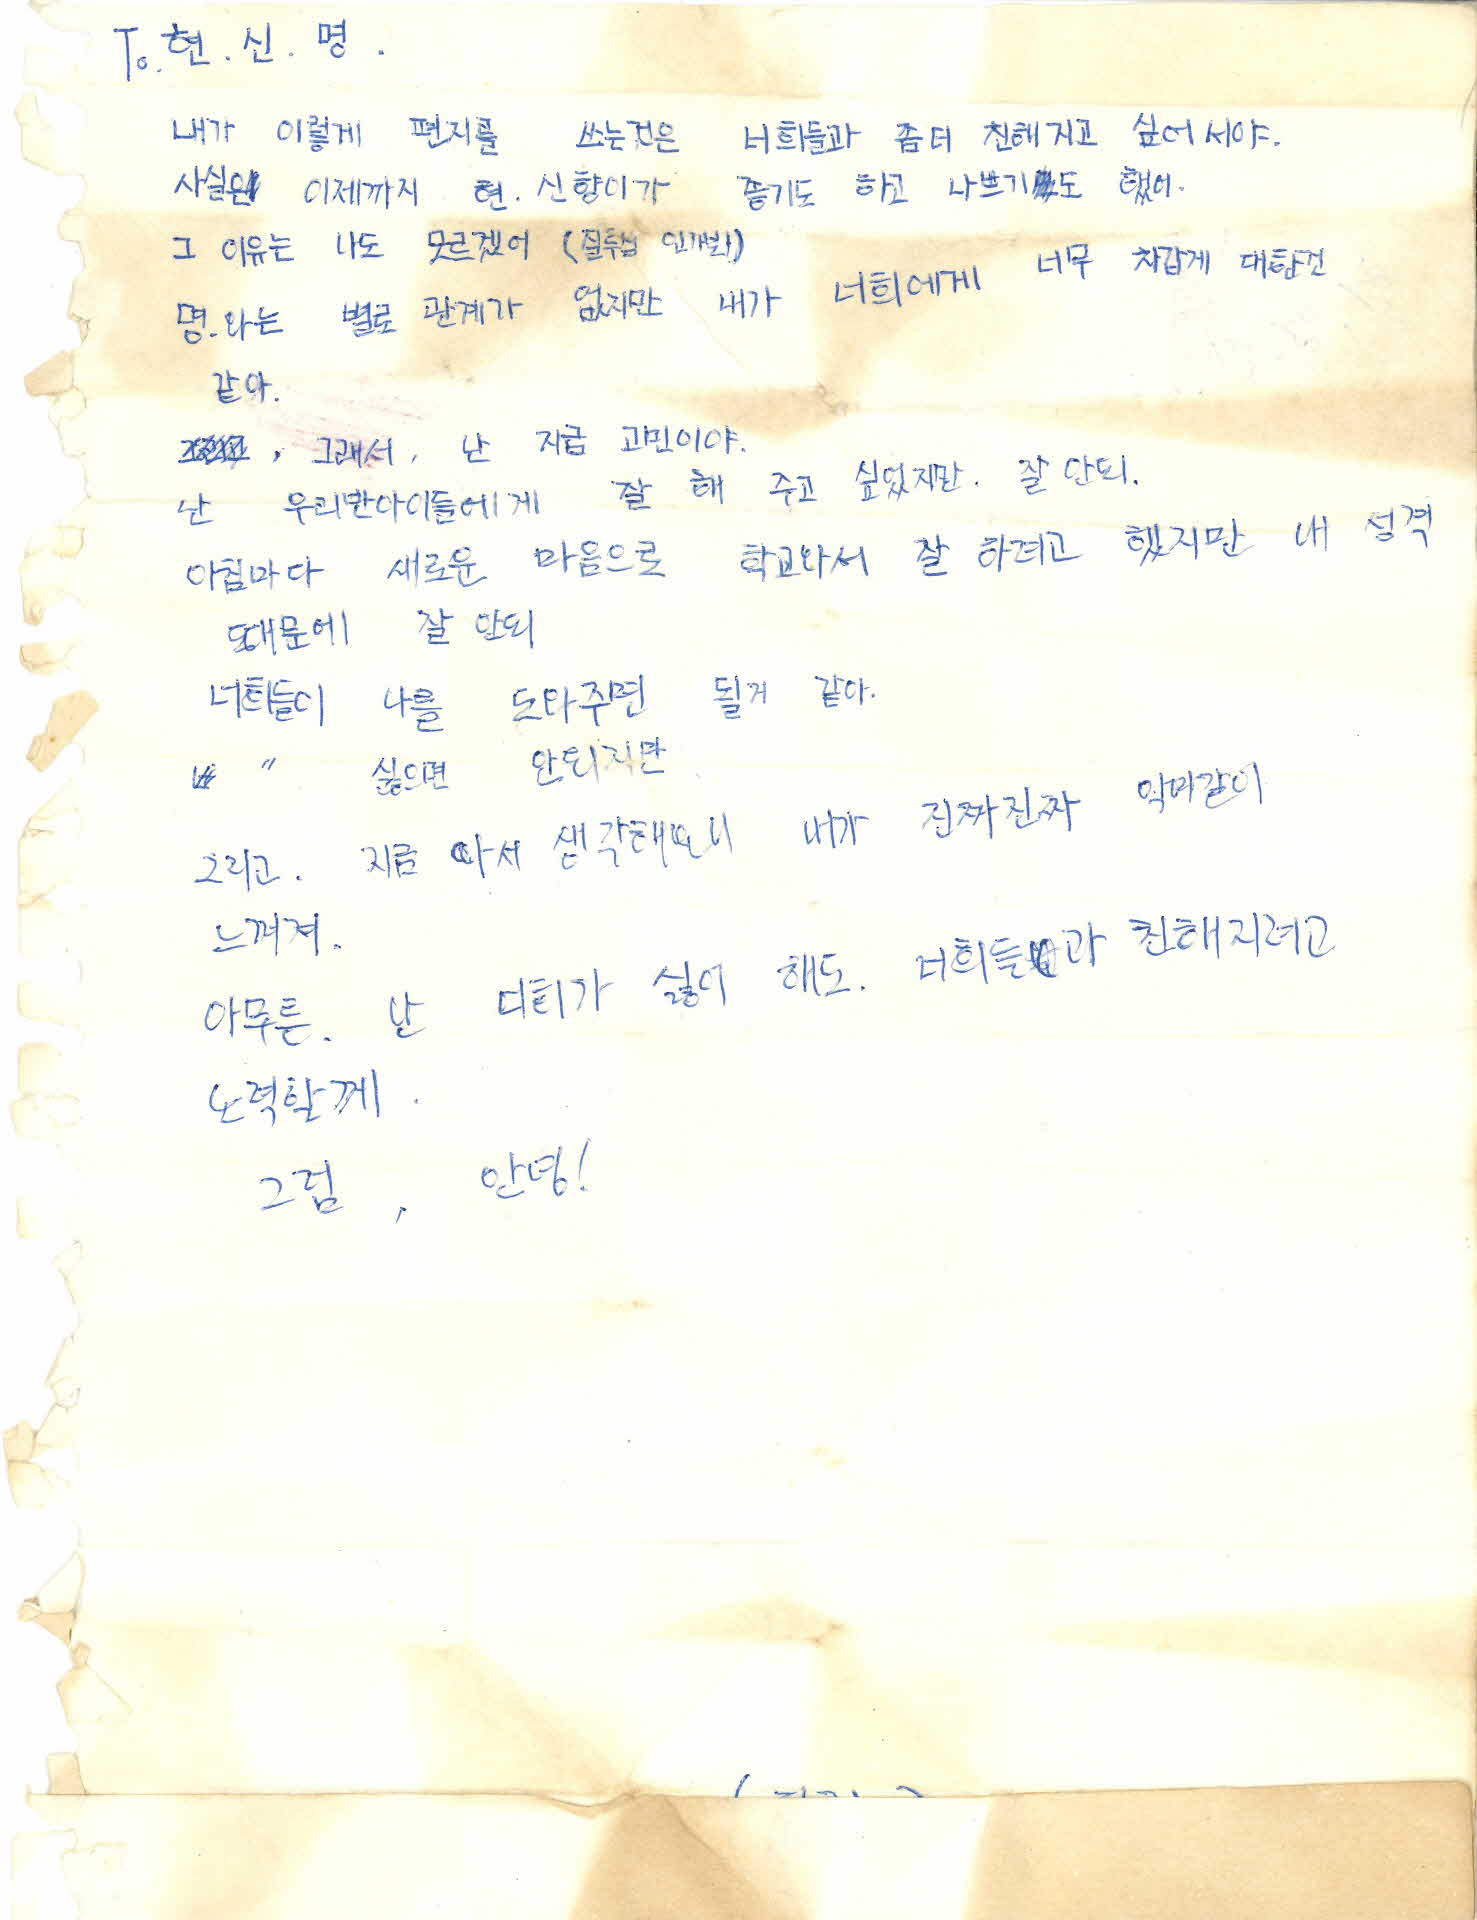 To. 현. 신. 명.
내가 이렇게 편지를 쓰는것은 너희들과 좀더 친해지고 싶어서야.
사실은 이제까지 현. 신향이가 좋기도 하고 나쁘기도 했어.
그 이유는 나도 모르겠어 (질투심 인가봐)
명.와는 별로 관계가 없지만 내가 너희에게 너무 차갑게 대한건
같아.
, 그래서, 난 지금 고민이야.
난 우리반아이들에게 잘 해 주고 싶었지만. 잘 안되.
아침마다 새로운 마음으로 학교와서 잘 하려고 했지만 내 성격
때문에 잘 안되
너희들이 나를 도와주면 될거 같아.
〃 싫으면 안되지만
그리고. 지금 와서 생각해보니 내가 진짜진짜 악마같이
느껴져.
아무튼. 난 너희가 싫어 해도. 너희들과 친해지려고
노력할께.
그럼, 안녕!